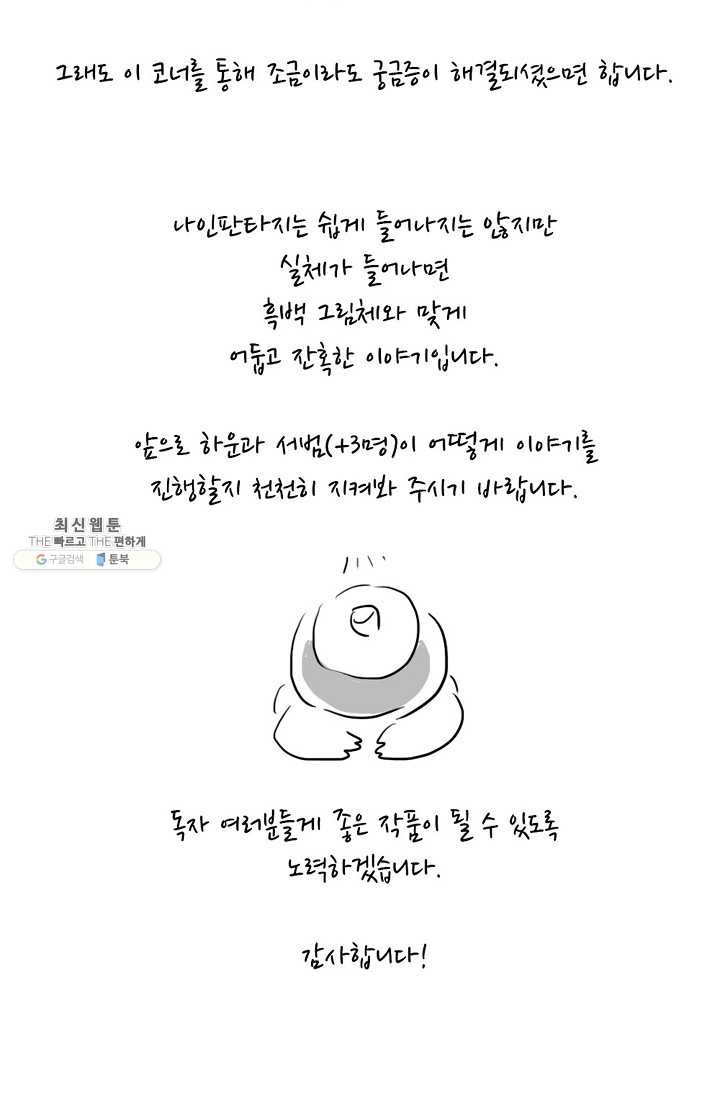 그래도 이 코너를 통해 조금이라도 궁금증이 해결되셨으면 합니다.
나인판타지는 쉽게 들어나지는 않지만
실체가 들어나면
흑백 그림체와 맞게
어둡고 잔혹한 이야기입니다.
앞으로 하운과 서범(+3명)이 어떻게 이야기를
진행할지 천천히 지켜봐 주시기 바랍니다.
최신웹툰
THE 빠르고 THE 편하게
구글검색 툰북
독자 여러분들게 좋은 작품이 될 수 있도록
노력하겠습니다.
감사합니다!